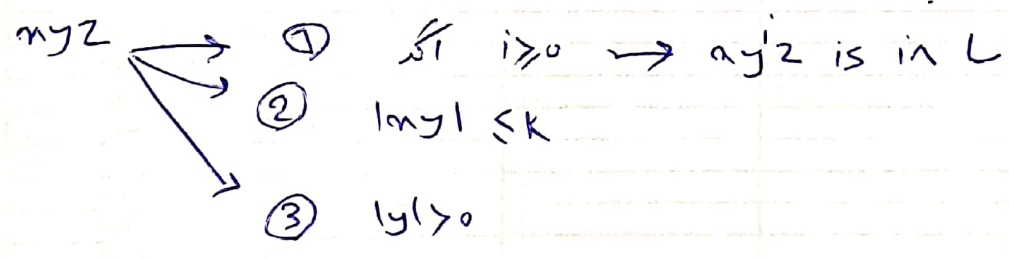 xyz → ① اگر i≥0 → xyⁱz is in L
② |xy| ≤ k
③ |y|>0